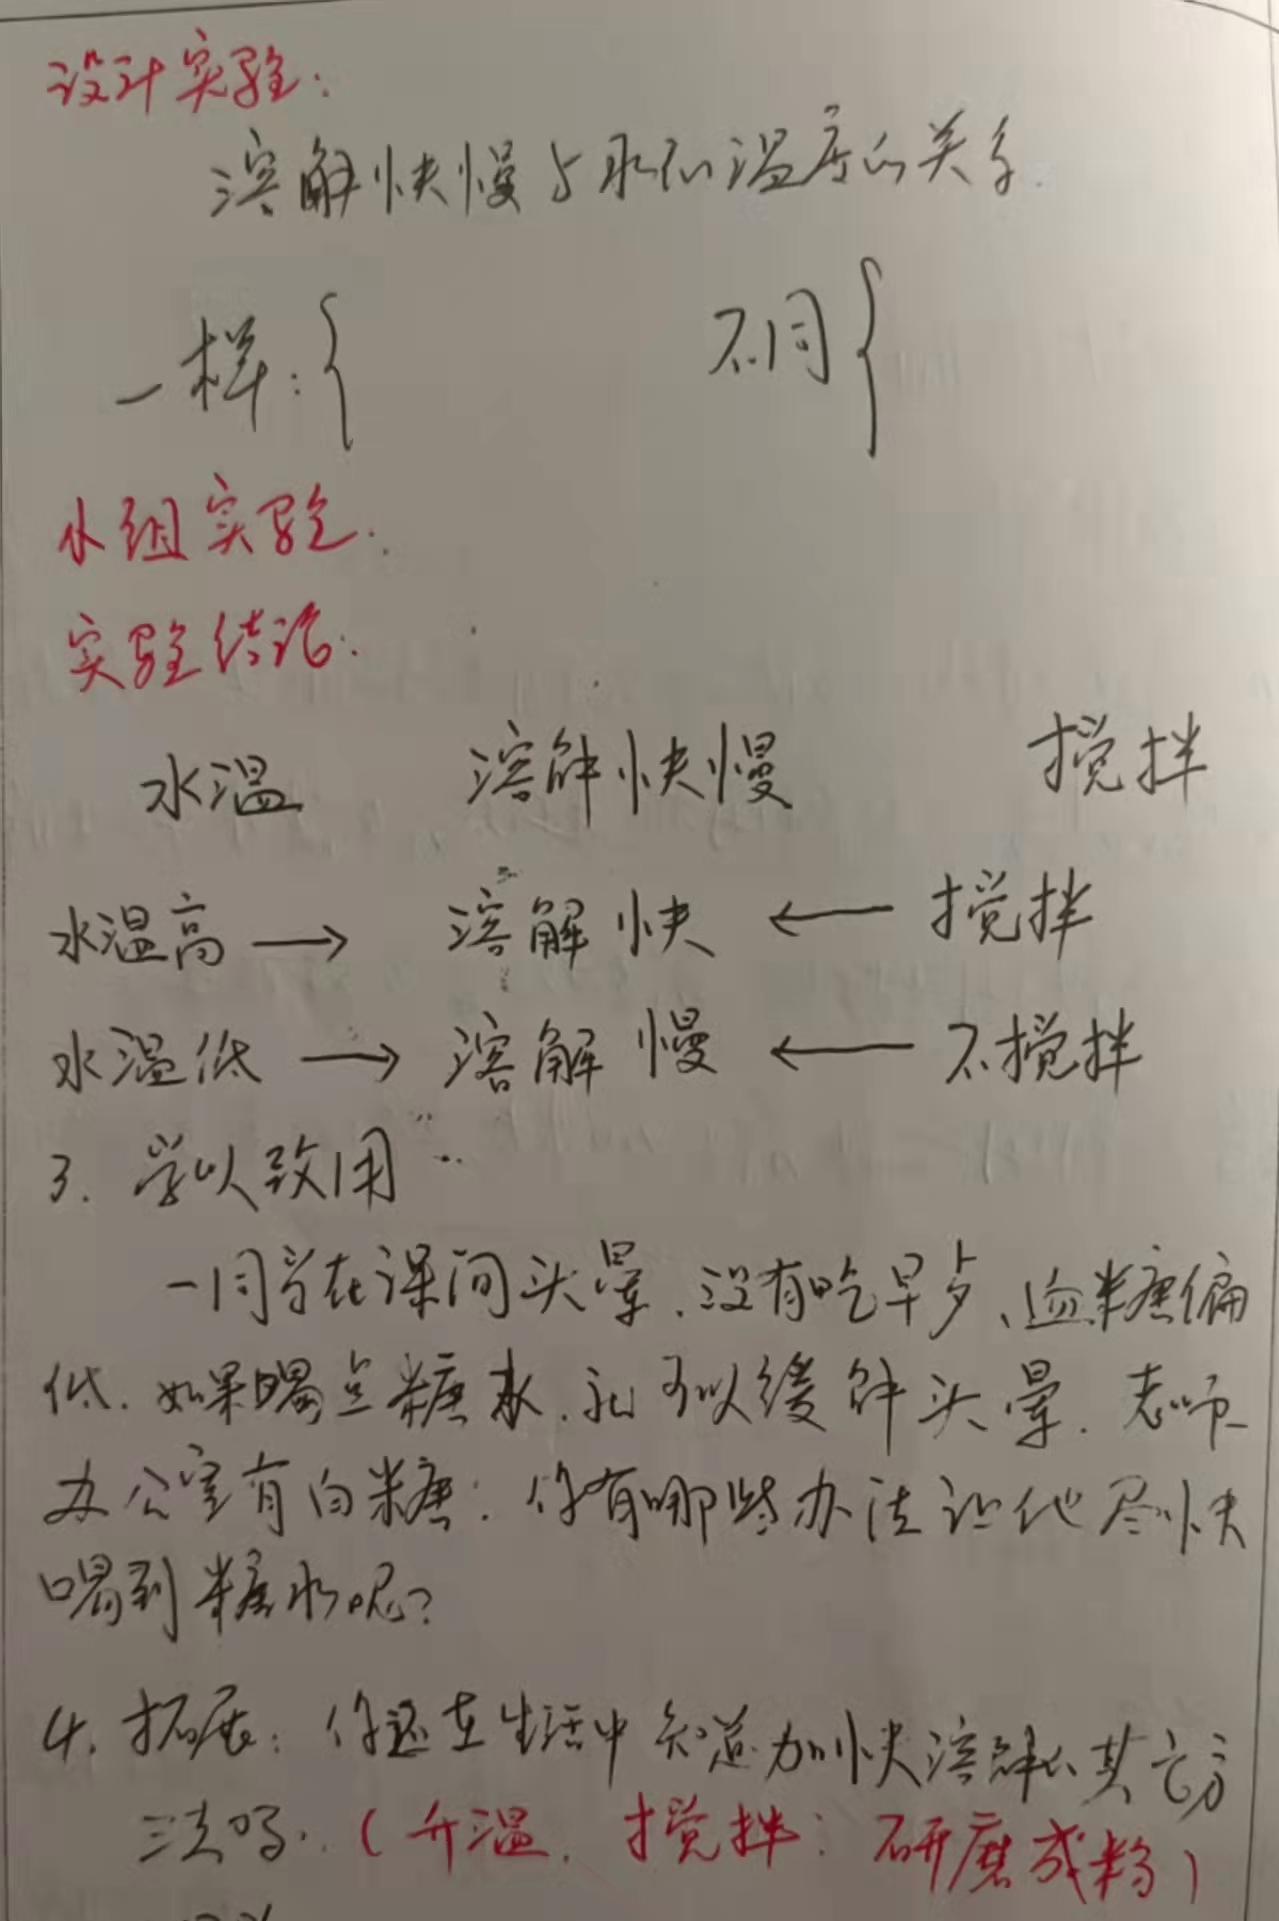 设计实验:
溶解快慢与水的温度的关系.
一样:{ 不同{
小组实验.
实验结论:
水温 溶解快慢 搅拌
水温高 → 溶解快 ← 搅拌
水温低 → 溶解慢 ← 不搅拌
3. 学以致用
一同学在课间头晕.没有吃早歺、血糖偏
低.如果喝点糖水.就可以缓解头晕.老师
办公室有白糖:你有哪些办法让他尽快
喝到糖水呢?
4. 拓展:你还在生活中知道加快溶解的其它方
法吗.(升温.搅拌:研磨成粉)